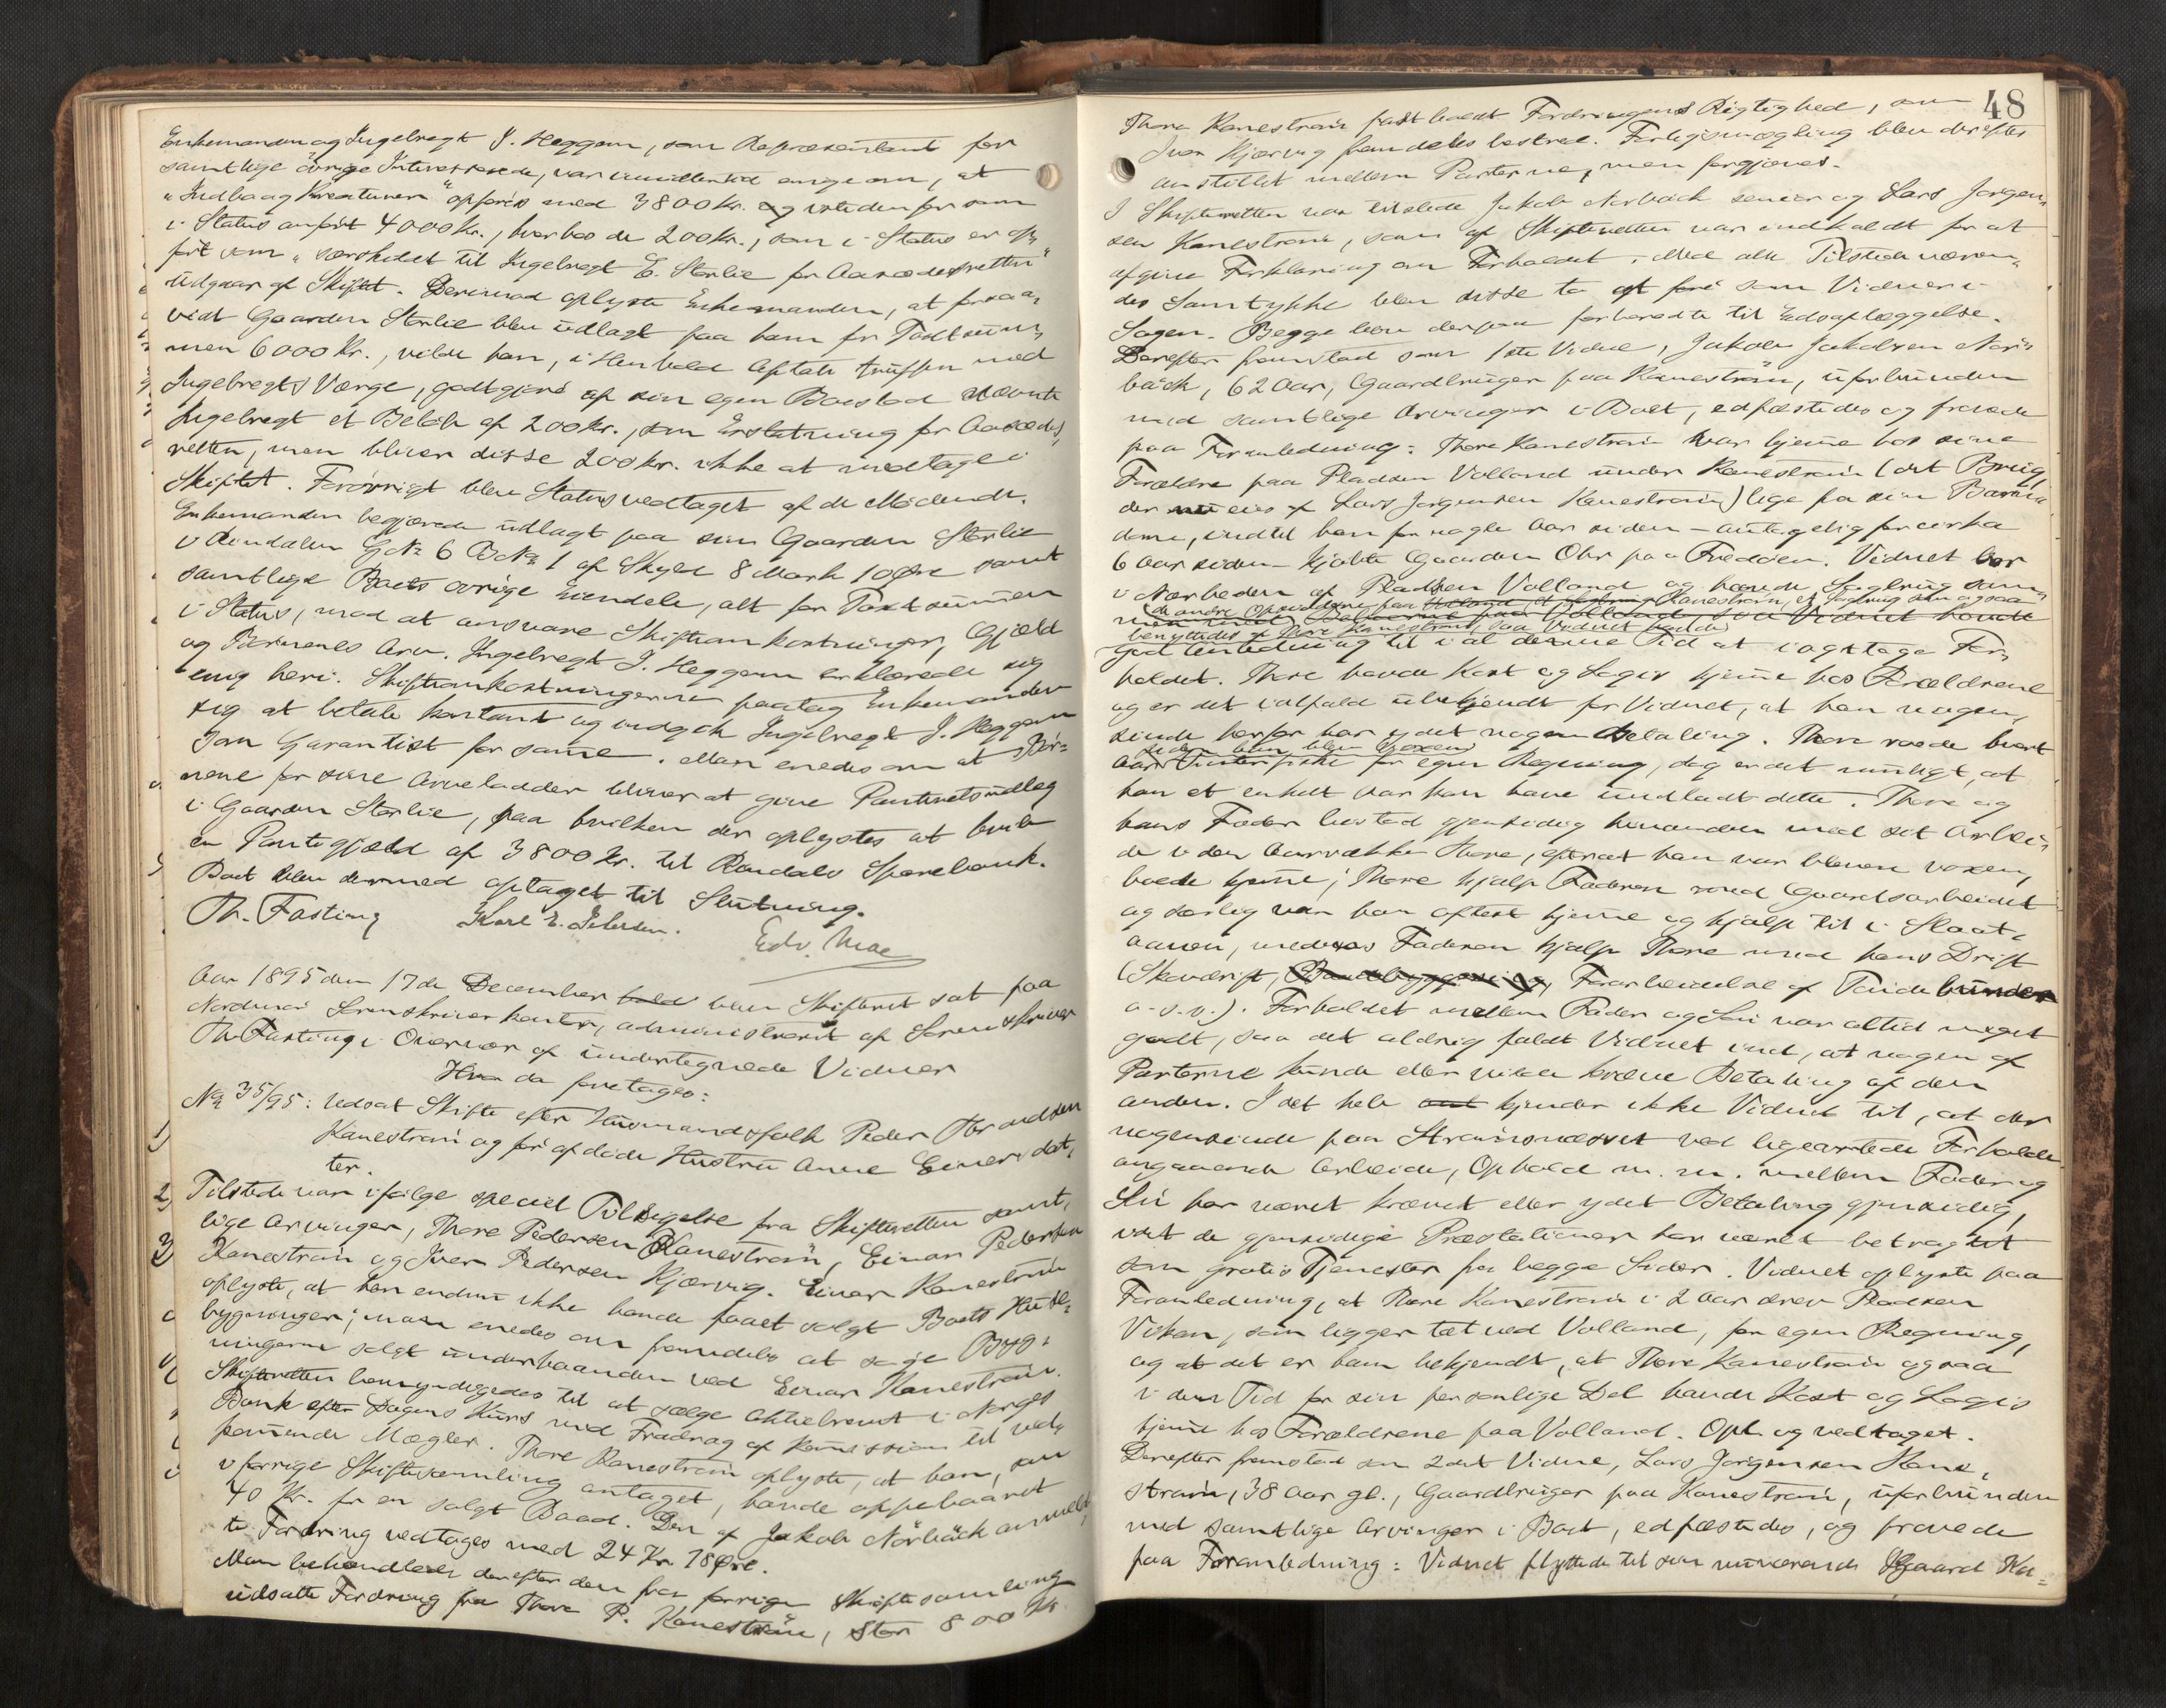 Enkemanden og Ingebregt J. Heggem, som Repræsentant for
samtlige øvrige Interesserede, var imidlertid enige om, at
"Indbo og Kreaturer" opføres med 3800 Kr. og istedenfor som
i Status anført 4000 Kr., hvorhos de 200 Kr., som i Status er op-
ført som "særskildt til Ingebregt E. Storlie for Aasædesretten"
udgaar af Skiftet. Derimod oplyste Enkemanden, at forsaa-
vidt Gaarden Storlie blev udlagt paa ham for Taxtsum-
men 6000 Kr., vilde han, i Henhold Aftale truffen med
Ingebregts Værge, godtgjøre af sin egen Boeslod nævnte
Ingebregt et Beløb af 200 Kr., som Erstatning for Aasædes-
retten, men bliver disse 200 Kr. ikke at medtage i
Skiftet. Forøvrigt blev Status vedtaget af de Mødende.
Enkemanden begjærede udlagt paa sin Gaarden Storlie
i Rindalen G.No 6 B.No 1 af Skyld 8 Mark 10 Øre samt
samtlige Boets øvrige Eiendele, alt for Taxtsummen
i Status, mod at ansvare Skifteomkostninger, Gjæld
og Børnenes Arv. Ingebregt J. Heggem erklærede sig
enig heri. Skifteomkostningerne paatog Enkemanden
sig at betale kontant og indgik Ingebregt J. Heggem
som Garantist for samme. Man enedes om at Bør-
nene for sine Arvelodder bliver at give Panteretsudlæg
i Gaarden Storlie, paa hvilken der oplystes at hvile
en Pantegjæld af 3800 Kr. til Rindals Sparebank.
Boet blev dermed optaget til Slutning.
Th. Fasting Karl E. Petersen. Edv. Moe
Aar 1895 den 17de December hold blev Skifteret sat paa
Nordmør Sorenskriverkontor, administreret af Sorenskriver
Th. Fasting i Overvær af undertegnede Vidner
Hvor da foretages:
No 35/95: Udsat Skifte efter Husmandsfolk Peder Thoresen
Kanestrøm og før afdøde Hustru Anne Einersdat-
ter.
Tilstede var ifølge speciel Tilsigelse fra Skifteretten samt-
lige Arvinger, Thore Pedersen Kanestrøm, Einar Pedersen
Kanestrøm og Iver Pedersen Kjørvig. Einar Kanestrøm
oplyste, at han endnu ikke havde faaet solgt Boets Huse-
bygninger; man enedes om fremdeles at søge Byg-
ningerne solgt underhaanden ved Einar Kanestrøm.
Skifteretten bemyndigedes til at sælge Aktiebrevet i Norges
Bank efter Dagens Kurs med Fradrag af Kommission til ved-
kommende Mægler. Thore Kanestrøm oplyste, at han, som
i forrige Skiftesamling antaget, havde oppebaaret
40 Kr. for en solgt Baad. Den af Jakob Nørbäck anmeld-
te Fordring vedtages med 24 Kr. 78 Øre.
Man behandlede derefter den fra forrige Skiftesamling
udsatte Fordring fra Thore P. Kanestrøm, stor 800 Kr.
48
Thore Kanestrøm fastholdt Fordringens Rigtighed, som
Iver Kjørvig fremdeles bestred. Forligsmægling blev derefter
anstillet mellem Parterne, men forgjæves.
I Skifteretten var tilstede Jakob Nørbäck senior og Lars Jørgen-
sen Kanestrøm, som af Skifteretten var indkaldt for at
afgive Forklaring om Forholdet. Med alle Tilstedeværen-
des Samtykke blev disse to at føre som Vidner i
Sagen. Begge blev derpaa forberedte til Edsaflæggelse.
Derefter fremstod som 1ste Vidne, Jakob Jakobsen Nør-
bäck, 62 Aar, Gaardbruger paa Kanestrøm, uforbunden
med samtlige Arvinger i Boet, edfæstedes og provede
paa Foranledning: Thore Kanestrøm var hjemme hos sine
Forældre paa Pladsen Volland under Kanestrøm (det Brug,
der nu eies af Lars Jørgensen Kanestrøm) lige fra sin Barn-
dom, indtil han for nogle Aar siden – antagelig for cirka
6 Aar siden – kjøbte Gaarden Ohr paa Fredøen. Vidnet bor
i Nærheden af Pladsen Volland og havde Saglrug sam-
de andre Opsiddere paa Kanestrøm, et Sagbrug som ogsaa
benyttedes af Thore Kanestrøm, saa Vidnet havde
god Anledning til i al denne Tid at iagttage For-
holdet. Thore havde Kost og Logis hjemme hos Forældrene
og er det ialfald ubekjendt for Vidnet, at han nogen-
sinde herfor har ydet nogen Betaling. Thore roede hvert
siden han blev voxen
Aar Vinterfiske for egen Regning, dog er det muligt, at
han et enkelt Aar kan have undladt dette. Thore og
hans Fader bistod gjensidig hinanden med sit Arbei-
de i den Aarrække Thore, efterat han var bleven voxen,
boede hjemme; Thore hjalp Faderen med Gaardsarbeidet
og særlig var han oftest hjemme og hjalp til i Slaat-
aannen, medens Faderen hjalp Thore med hans Drift
(Skovdrift, Baadbyggning og, Forarbeidelse af Tøndebunder
o.s.v.). Forholdet mellem Fader og Søn var altid meget
godt, saa det aldrig faldt Vidnet ind, at nogen af
Parterne kunde eller vilde kræve Betaling af den
anden. I det hele kjender ikke Vidnet til, at der
nogensinde paa Strømsneset ved ligeartede Forholde
angaaende Arbeide, Ophold m.m. mellem Fader og
Søn har været krævet eller ydet Betaling gjensidig,
idet de gjensidige Præstationer har været betragtet
som gratis Tjenester fra begge Sider. Vidnet oplyste paa
Foranledning, at Thore Kanestrøm i 2 Aar drev Pladsen
Viken, som ligger tæt ved Volland, for egen Regning,
og at det er ham bekjendt, at Thore Kanestrøm ogsaa
i den Tid for sin personlige Del havde Kost og Logis
hjemme hos Forældrene paa Volland. Opl. og vedtaget.
Derefter fremstod som 2det Vidne, Lars Jørgensen Kane-
strøm, 38 Aar gl., Gaardbruger paa Kanestrøm, uforbunden
med samtlige Arvinger i Boet, edfæstedes, og provede
paa Foranledning: Vidnet flyttede til sin nuværende Gaard Ka-